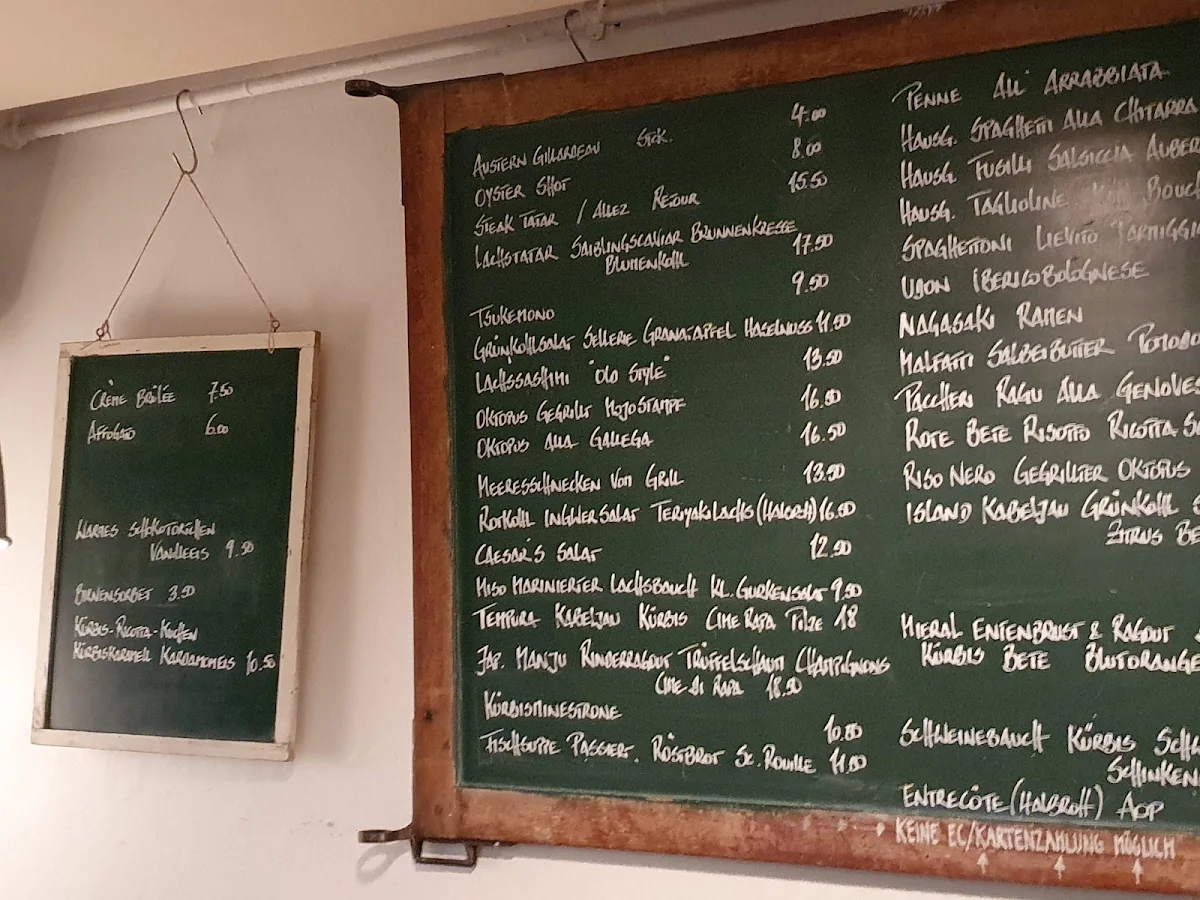 CRÈME BRÛLÉE 7.50
AFFOGATO 6.00
WARMES SCHOKOTÖRTCHEN
VANILLEEIS 9.50
BIRNENSORBET 3.50
KÜRBIS-RICOTTA-KUCHEN
KÜRBISKARAMELL KARDAMOMEIS 10.50
AUSTERN GILLARDEAU STCK. 4.00
OYSTER SHOT 8.00
STEAK TATAR / ALLEZ RETOUR 15.50
LACHSTATAR SAIBLINGSCAVIAR BRUNNENKRESSE
BLUMENKOHL 17.50
TSUKEMONO 9.50
GRÜNKOHLSALAT SELLERIE GRANATAPFEL HASELNUSS 11.50
LACHSSASHIMI "OLD STYLE" 13.50
OKTOPUS GEGRILLT MOJO STAMPF 16.00
OKTOPUS ALLA GALLEGA 16.50
MEERESSCHNECKEN VOM GRILL 13.50
ROTKOHL INGWER SALAT TERIYAKILACHS (HALBROH) 16.50
CAESAR'S SALAT 12.50
MISO MARINIERTER LACHSBAUCH KL. GURKENSALAT 9.50
TEMPURA KABELJAU KÜRBIS CIME RAPA PILZE 18
JAP. MANJU RINDERRAGOUT TRÜFFELSCHAUM CHAMPIGNONS
CIME DI RAPA 18.50
KÜRBISMINESTRONE 10.00
FISCHSUPPE PASSIERT. RÖSTBROT SC. ROUILLE 11.00
PENNE ALL' ARRABBIATA
HAUSG. SPAGHETTI ALLA CHITARRA
HAUSG. FUSILLI SALSICCIA AUBER
HAUSG. TAGLIOLINE BOUCH
SPAGHETTONI LIEVITO PARMIGGI
UDON IBERICO BOLOGNESE
NAGASAKI RAMEN
MALFATTI SALBEIBUTTER POMODO
PACCHERI RAGU ALLA GENOVES
ROTE BETE RISOTTO RICOTTA SA
RISO NERO GEGRILLTER OKTOPUS
ISLAND KABELJAU GRÜNKOHL
ZITRUS BE
MIERAL ENTENBRUST & RAGOUT
KÜRBIS BETE BLUTORANGE
SCHWEINEBAUCH KÜRBIS SCH
SCHINKEN
ENTRECÔTE (HALBROH) AOP
KEINE EC/KARTENZAHLUNG MÖGLICH